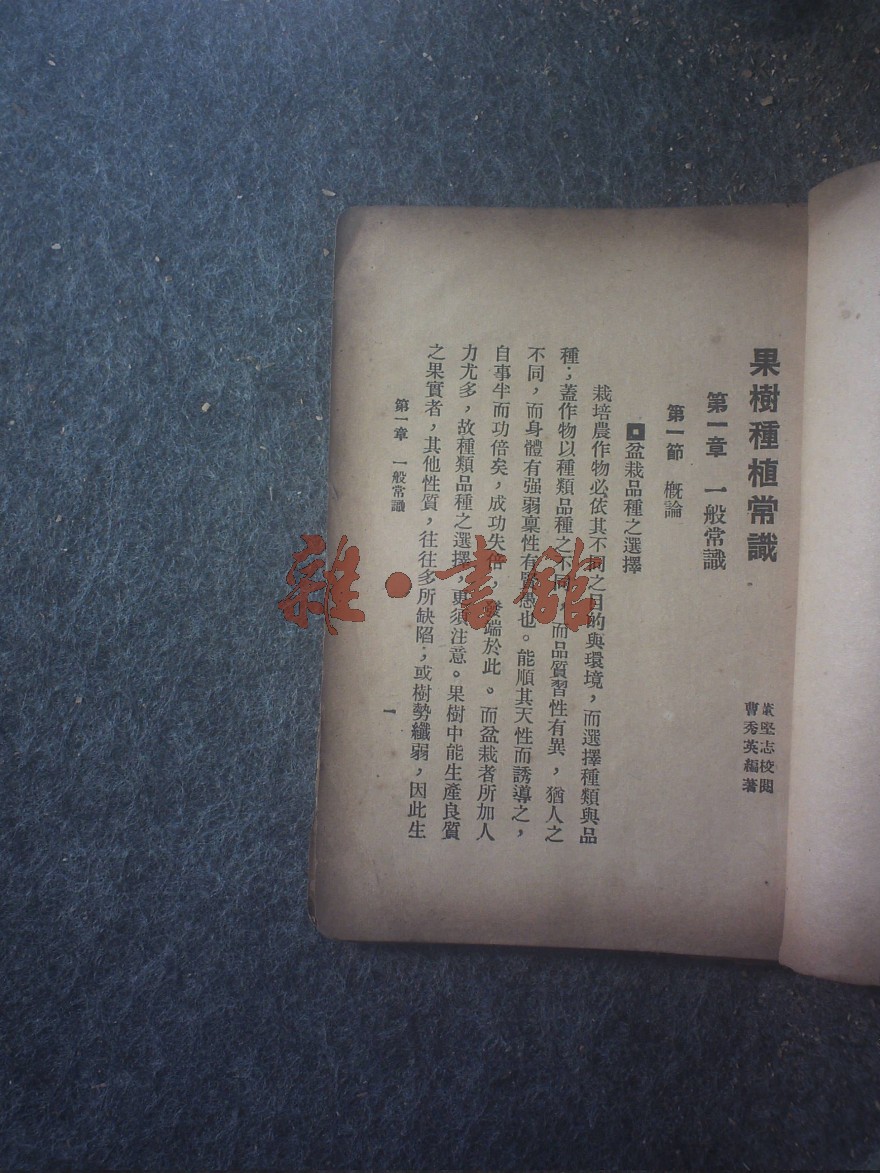 果樹種植常識
董堅志校閱
曹秀英編著
第一章 一般常識
第一節 概論
盆栽品種之選擇
栽培農作物必依其不同之目的與環境，而選擇種類與品
種；蓋作物以種類品種之不同，而品質習性有異，猶人之
不同，而身體有强弱稟性有賢愚也。能順其天性而誘導之，
自事半而功倍矣，成功失倍，發端於此。而盆栽者所加人
力尤多，故種類品種之選擇，更須注意。果樹中能生產良質
之果實者，其他性質，往往多所缺陷，或樹勢纖弱，因此生
第一章 一般常識
一
雜·書館